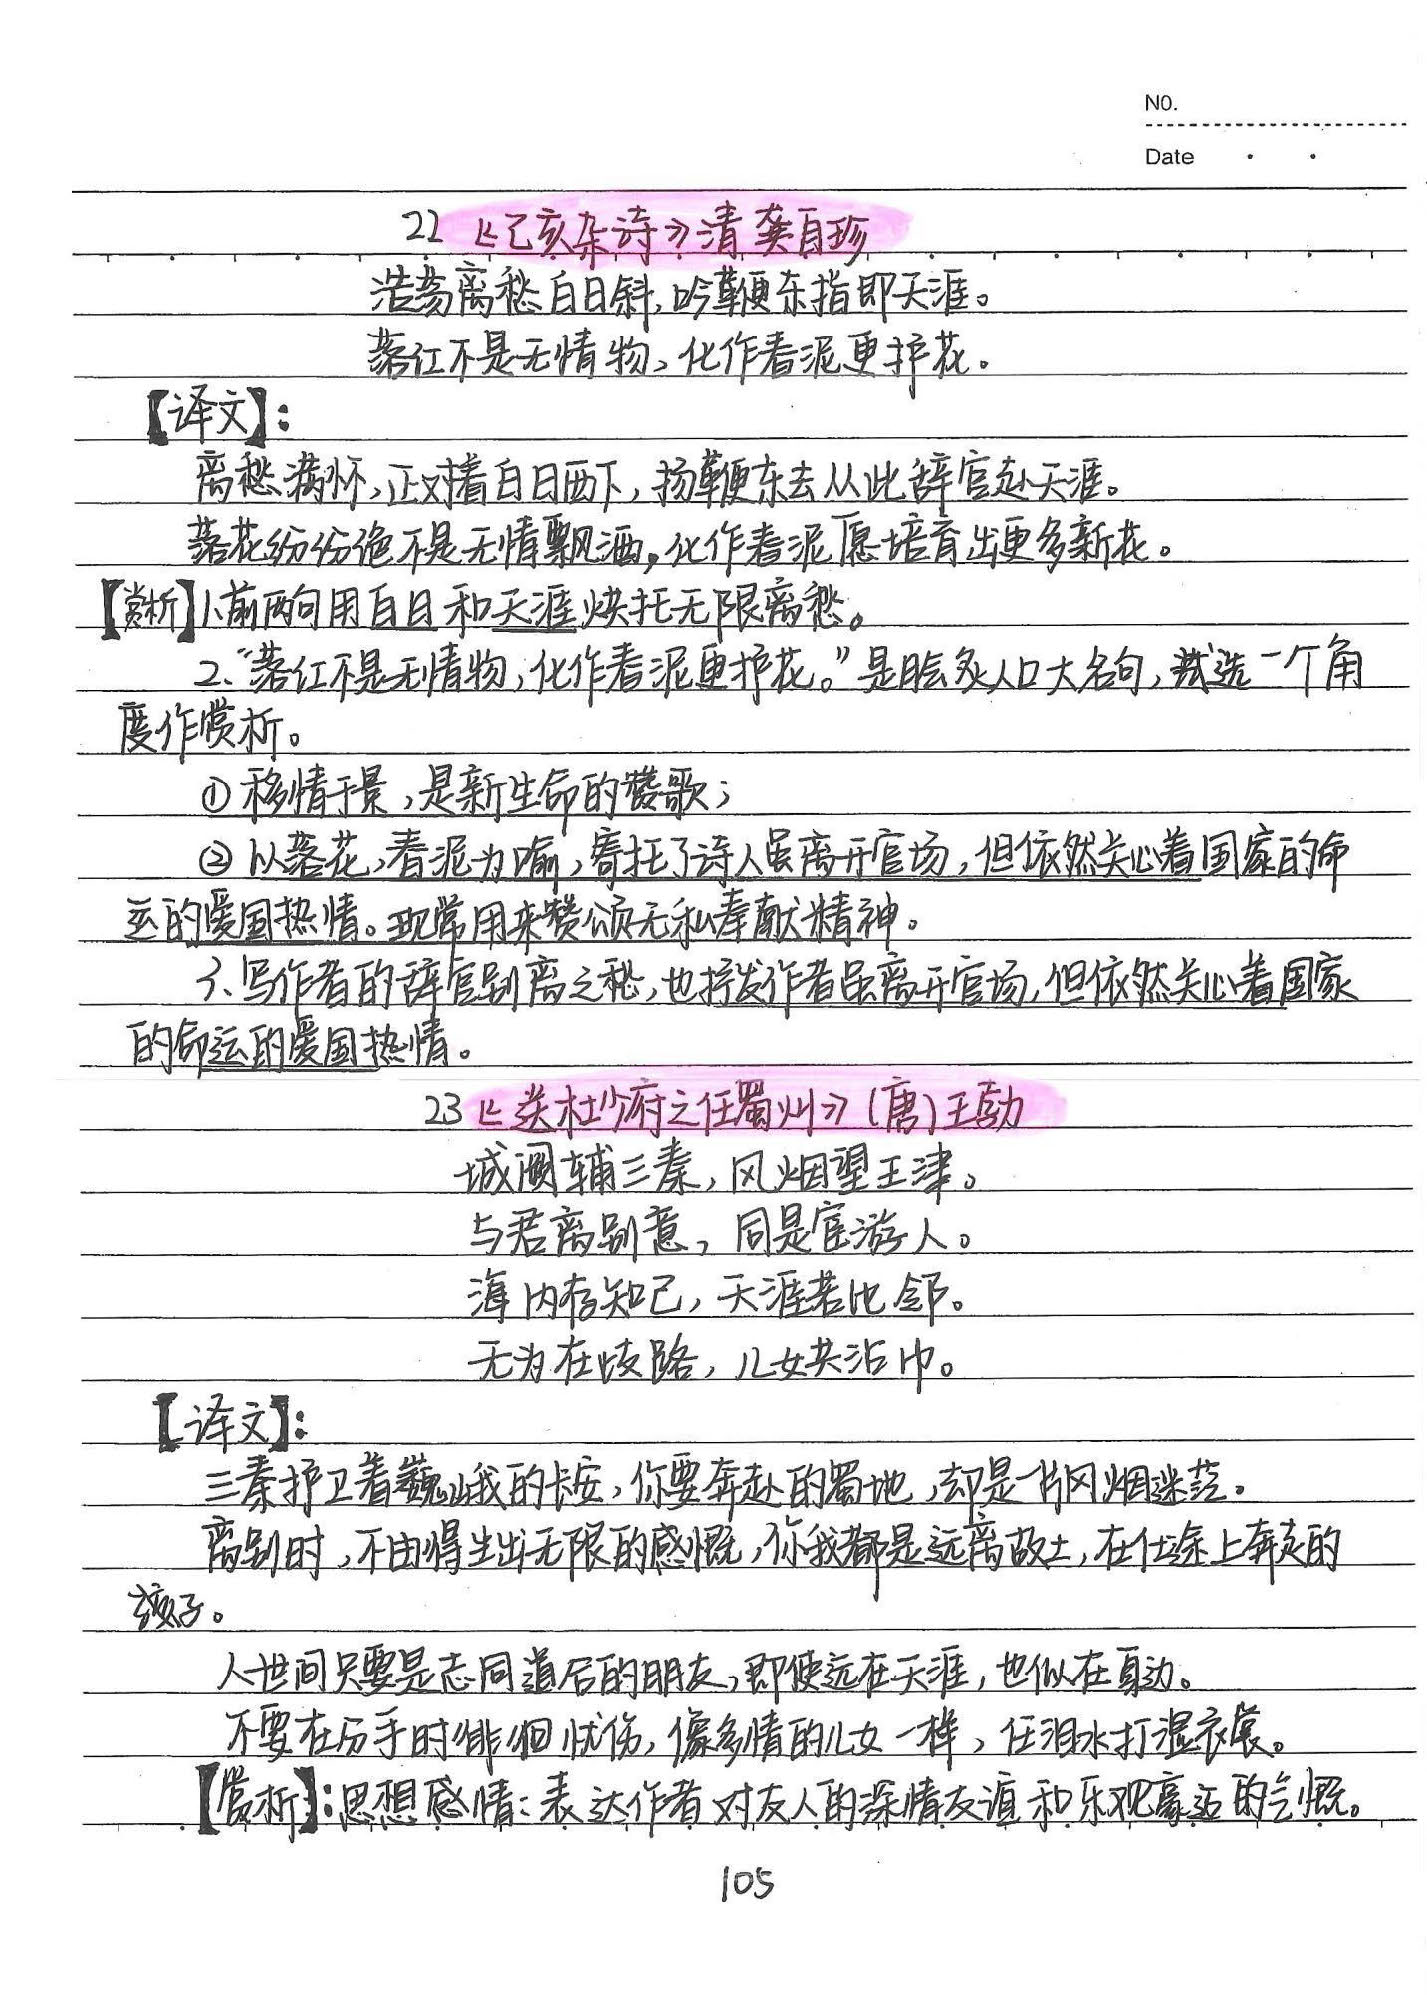 NO.
Date
22 《己亥杂诗》清 龚自珍
浩荡离愁白日斜,吟鞭东指即天涯。
落红不是无情物,化作春泥更护花。
【译文】:
离愁满怀,正对着白日西下,扬鞭东去从此辞官赴天涯。
落花纷纷绝不是无情飘洒,化作春泥愿培育出更多新花。
【赏析】1、前两句用白日和天涯烘托无限离愁。
2、“落红不是无情物,化作春泥更护花。”是脍炙人口大名句,试选一个角
度作赏析。
①移情于景,是新生命的赞歌;
②以落花,春泥为喻,寄托了诗人虽离开官场,但依然关心着国家的命
运的爱国热情。现常用来赞颂无私奉献精神。
3、写作者的辞官别离之愁,也抒发作者虽离开官场,但依然关心着国家
的命运的爱国热情。
23 《送杜少府之任蜀州》(唐)王勃
城阙辅三秦,风烟望五津。
与君离别意,同是宦游人。
海内存知己,天涯若比邻。
无为在歧路,儿女共沾巾。
【译文】:
三秦护卫着巍峨的长安,你要奔赴的蜀地,却是一片风烟迷茫。
离别时,不由得生出无限的感慨,你我都是远离故土,在仕途上奔走的
孩子。
人世间只要是志同道合的朋友,即使远在天涯,也似在身边。
不要在分手时徘徊忧伤,像多情的儿女一样,任泪水打湿衣裳。
【赏析】:思想感情:表达作者对友人的深情友谊和乐观豪迈的气慨。
105